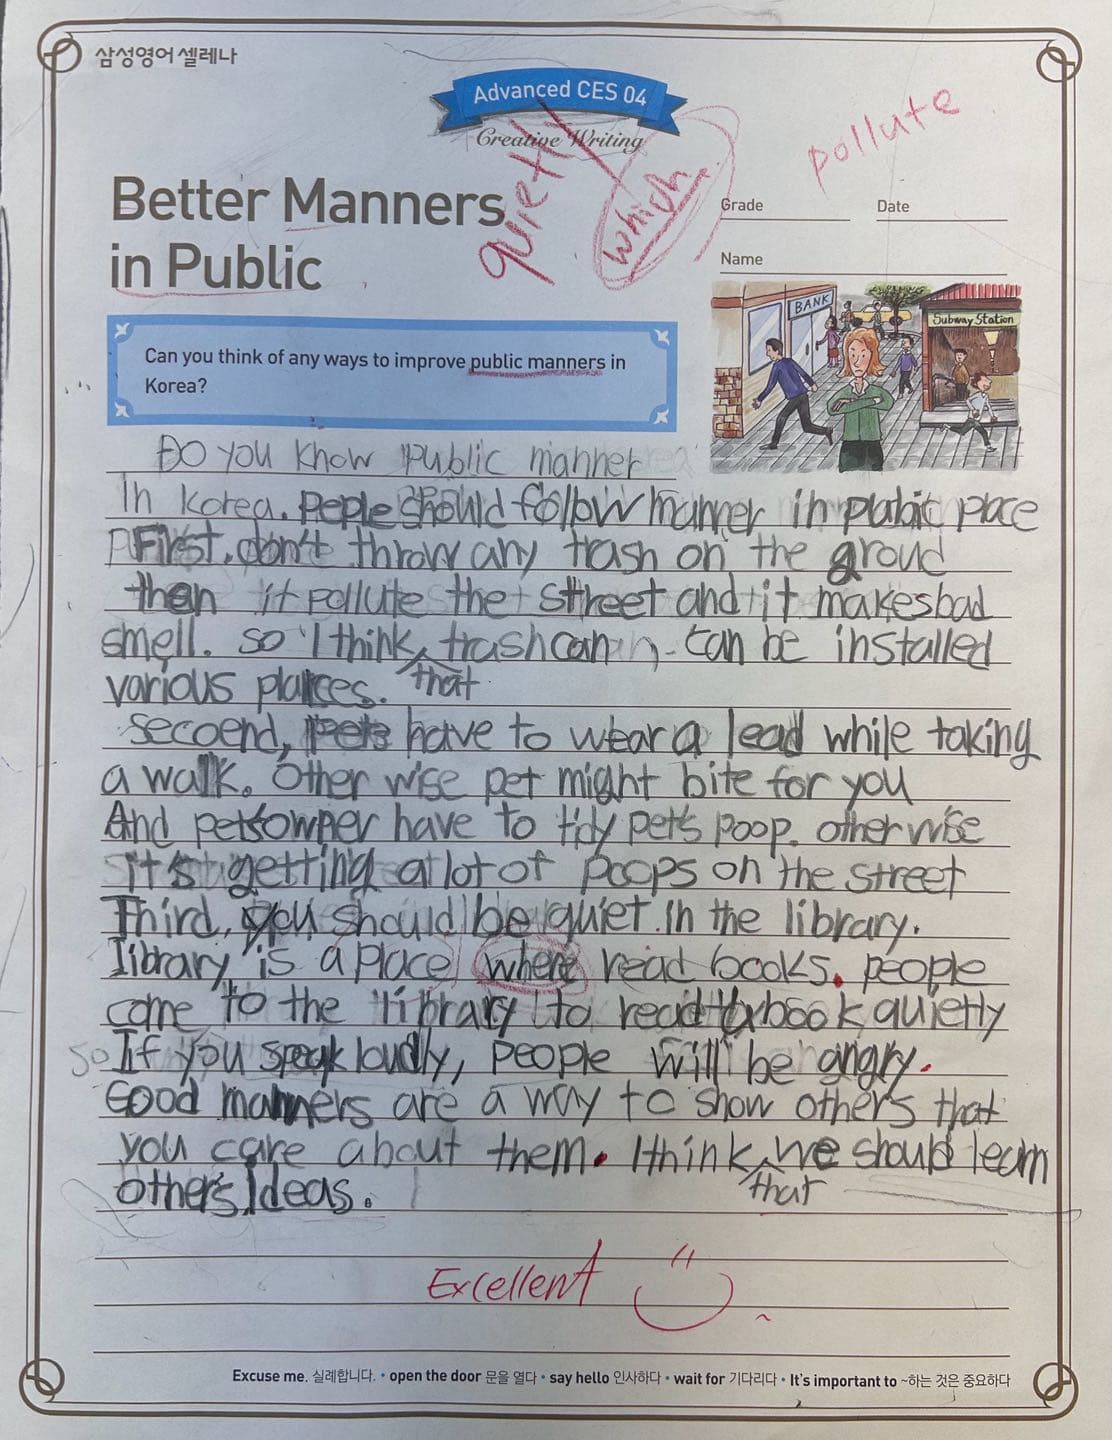 삼성영어 셀레나
Advanced CES 04
Creative Writing
pollute
quietly
which
Better Manners
in Public
Grade
Date
Name
BANK
Subway Station
Can you think of any ways to improve public manners in
Korea?
Do you know public manner
In korea. Peple should follow manner in plubic place
First, don't throw any trash on the groud
then it pollute the street and it makes bad
smell. so I think that trashcan can be installed
various places.
secoend, pets have to wear a lead while taking
a walk. Other wise pet might bite for you
And petsowner have to tidy pet's poop. other wise
it's getting a lot of poops on the street
Third, you should be quiet in the library.
library is a place where read books. people
come to the library to read a book quietly
so If you speak loudly, people will be angry.
Good manners are a way to show others that
you care about them. I think that we should learn
other's Ideas.
Excellent
Excuse me. 실례합니다. • open the door 문을 열다 • say hello 인사하다 • wait for 기다리다 • It's important to ~하는 것은 중요하다